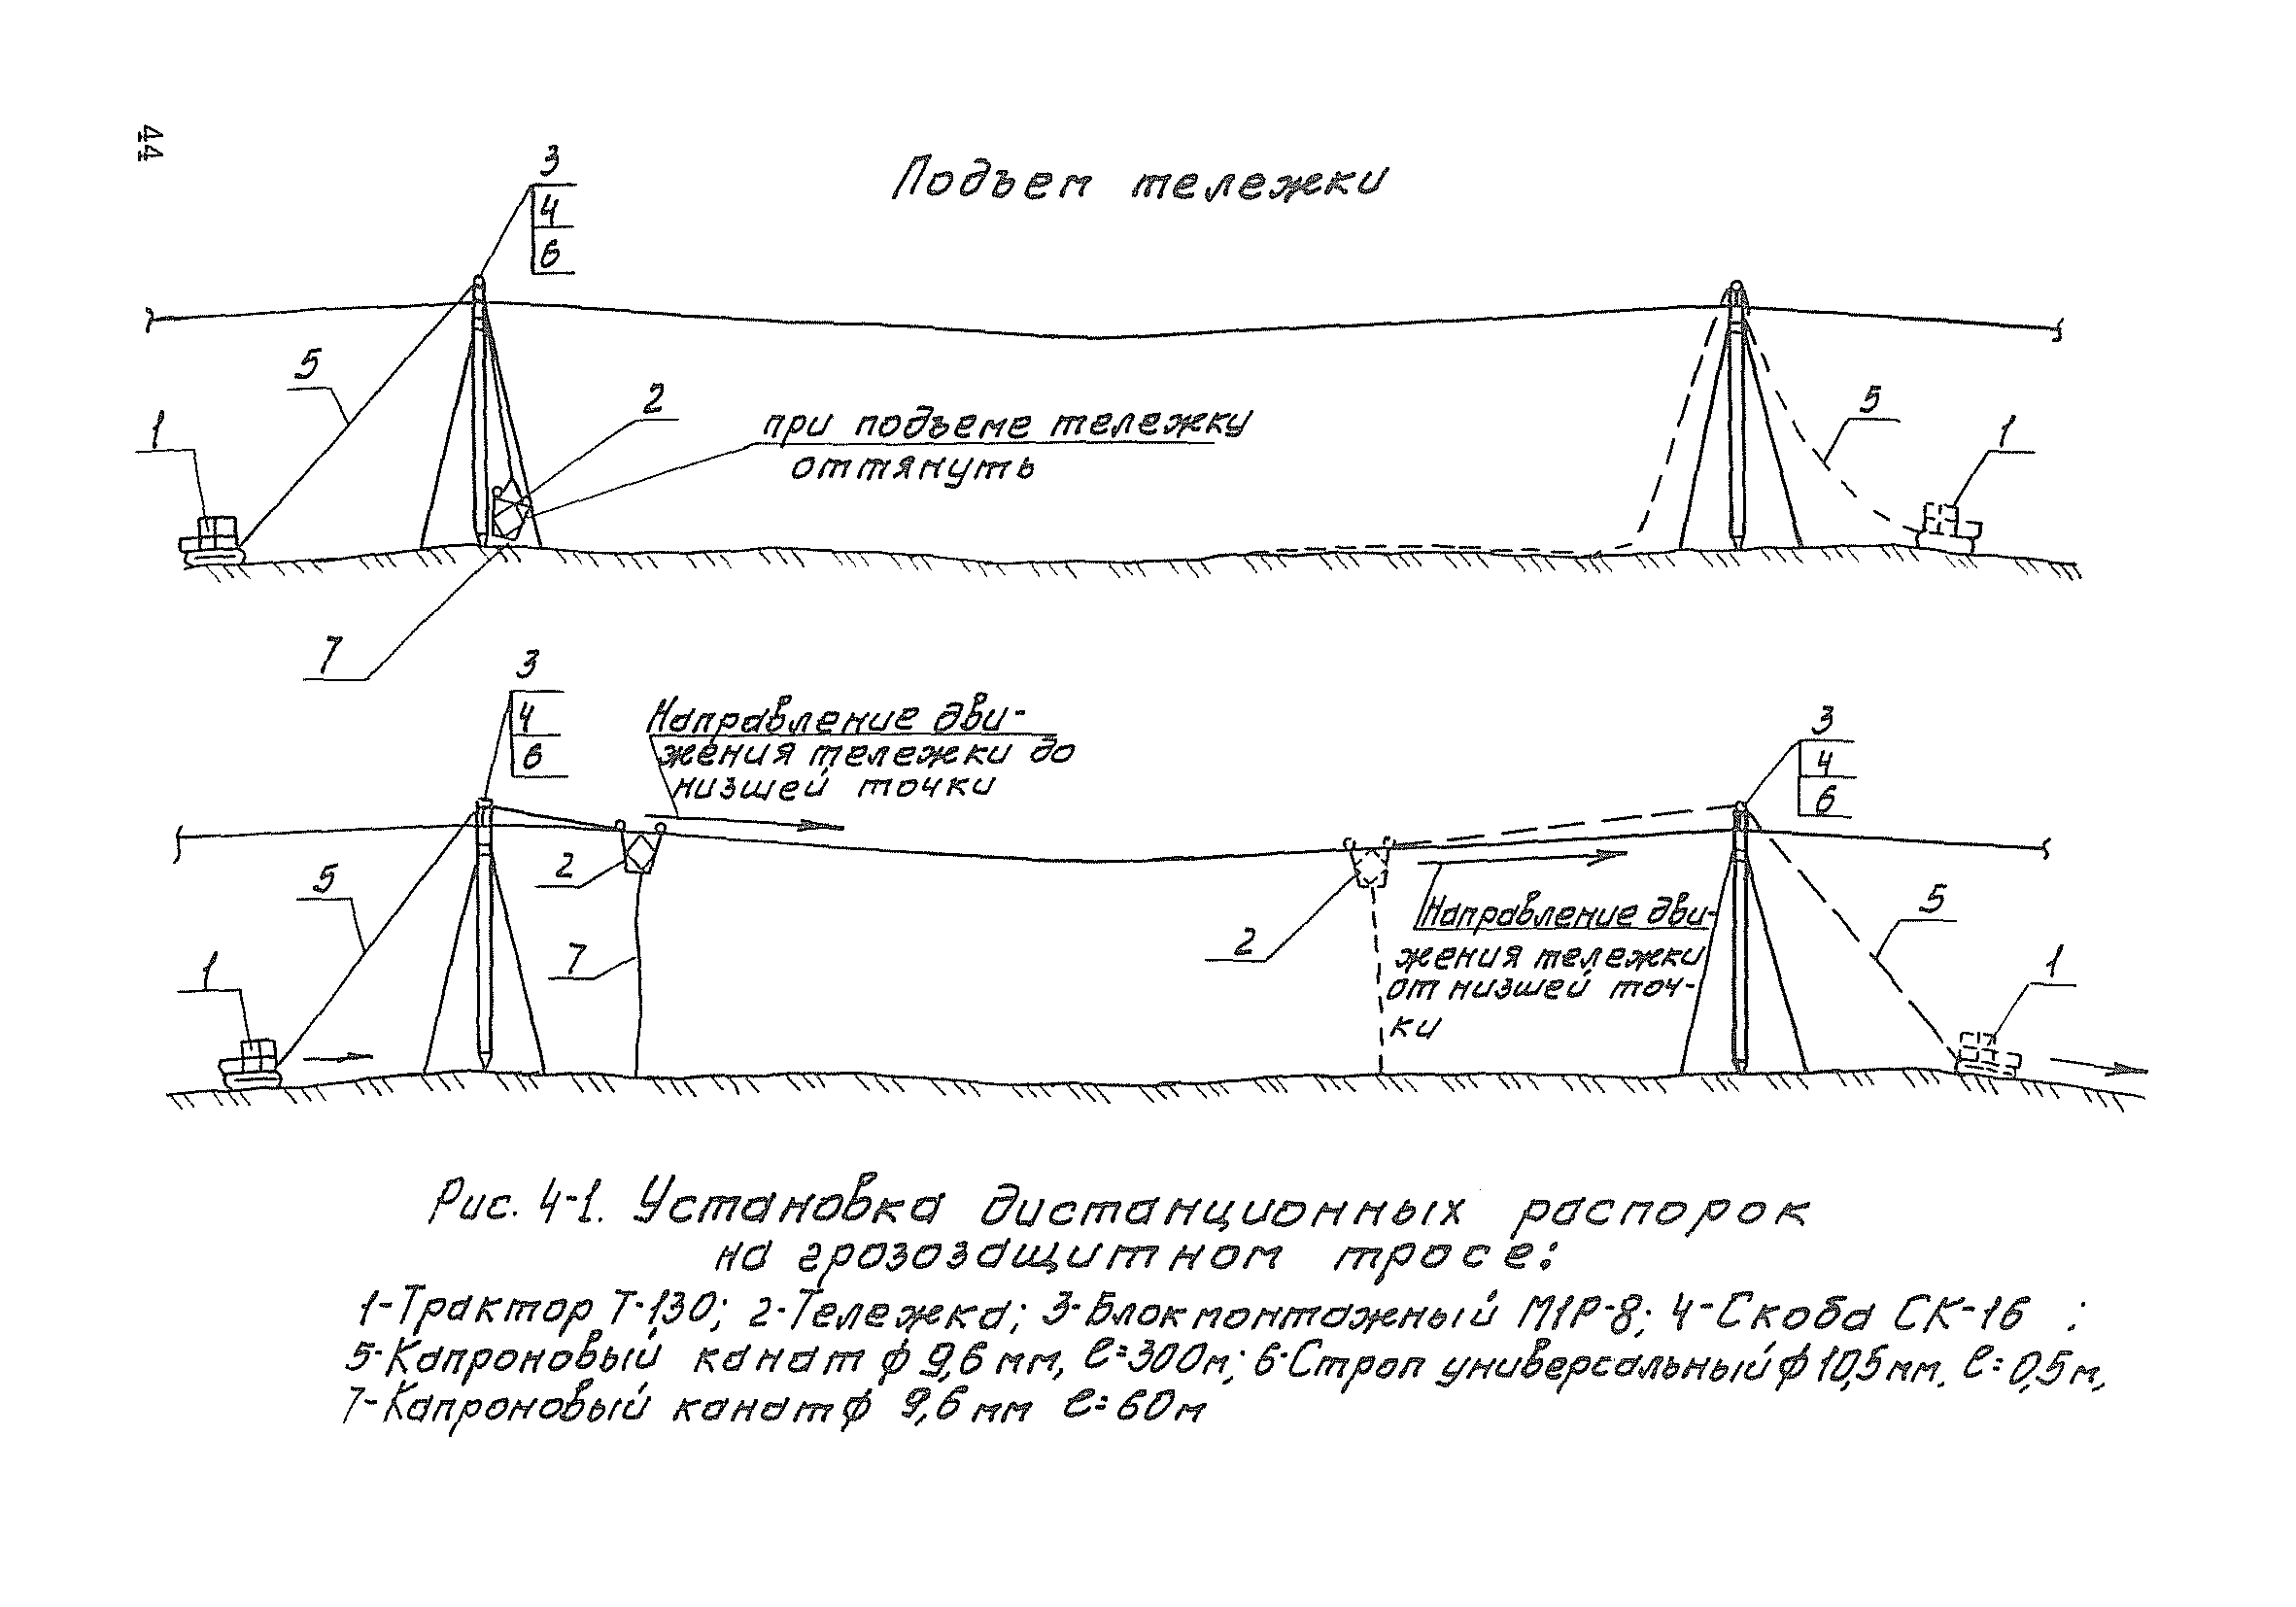 44
Подъем тележки
3
4
6
5
2
при подъеме тележку
оттянуть
1
5
1
7
3
4
6
Направление дви-
жения тележки до
низшей точки
3
4
6
2
5
7
2
Направление дви-
жения тележки
от низшей точ-
ки
5
1
1
Рис. 4-1. Установка дистанционных распорок
на грозозащитном тросе:
1-Трактор Т-130; 2-Тележка; 3-Блок монтажный М1Р-8; 4-Скоба СК-16 ;
5-Капроновый канат ф 9,6 мм, ℓ=300м; 6-Строп универсальный ф 10,5 мм. ℓ=0,5 м,
7-Капроновый канат ф 9,6 мм ℓ=60м